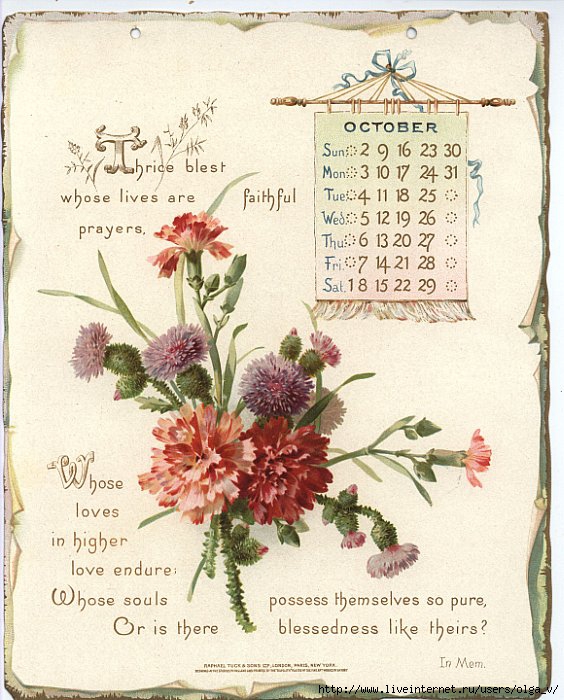 Thrice blest
whose lives are faithful
prayers,
OCTOBER
Sun 2 9 16 23 30
Mon 3 10 17 24 31
Tue 4 11 18 25
Wed 5 12 19 26
Thu 6 13 20 27
Fri 7 14 21 28
Sat. 1 8 15 22 29
Whose
loves
in higher
love endure;
Whose souls possess themselves so pure,
Or is there blessedness like theirs?
In Mem.
RAPHAEL TUCK & SONS LTD, LONDON, PARIS, NEW YORK.
http://www.liveinternet.ru/users/olga_v/